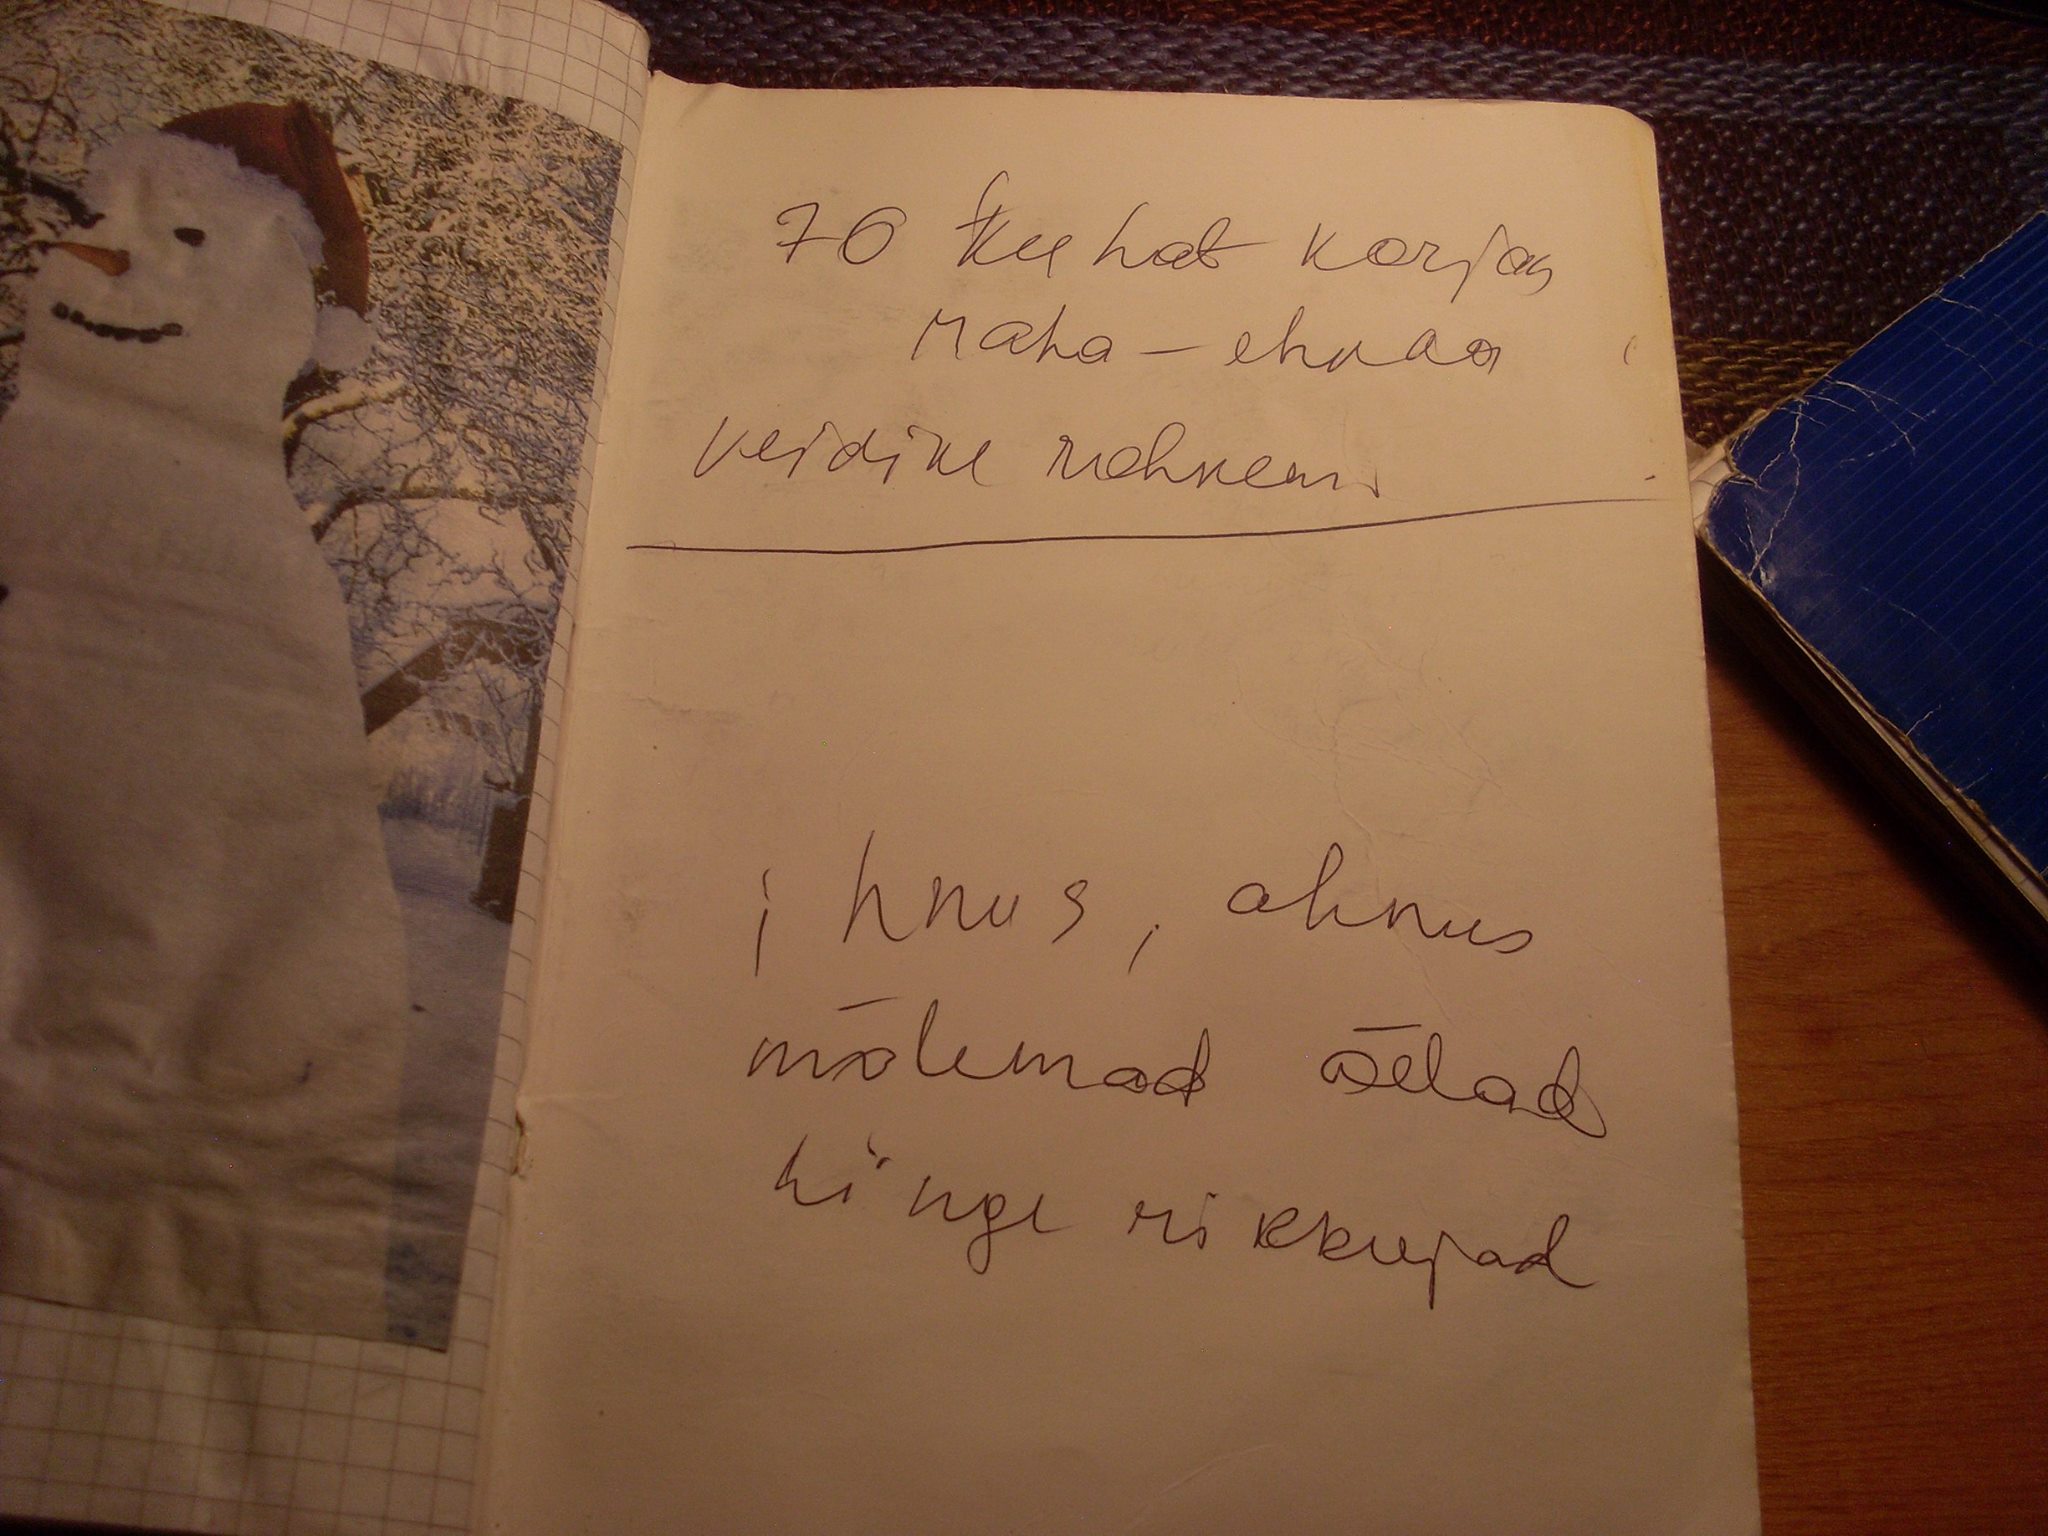 70 kuhat korjas
raha - ehk ka
veidike rohkem.
ihnus, ahnus
mõlemad õelad
hinge rikkujad